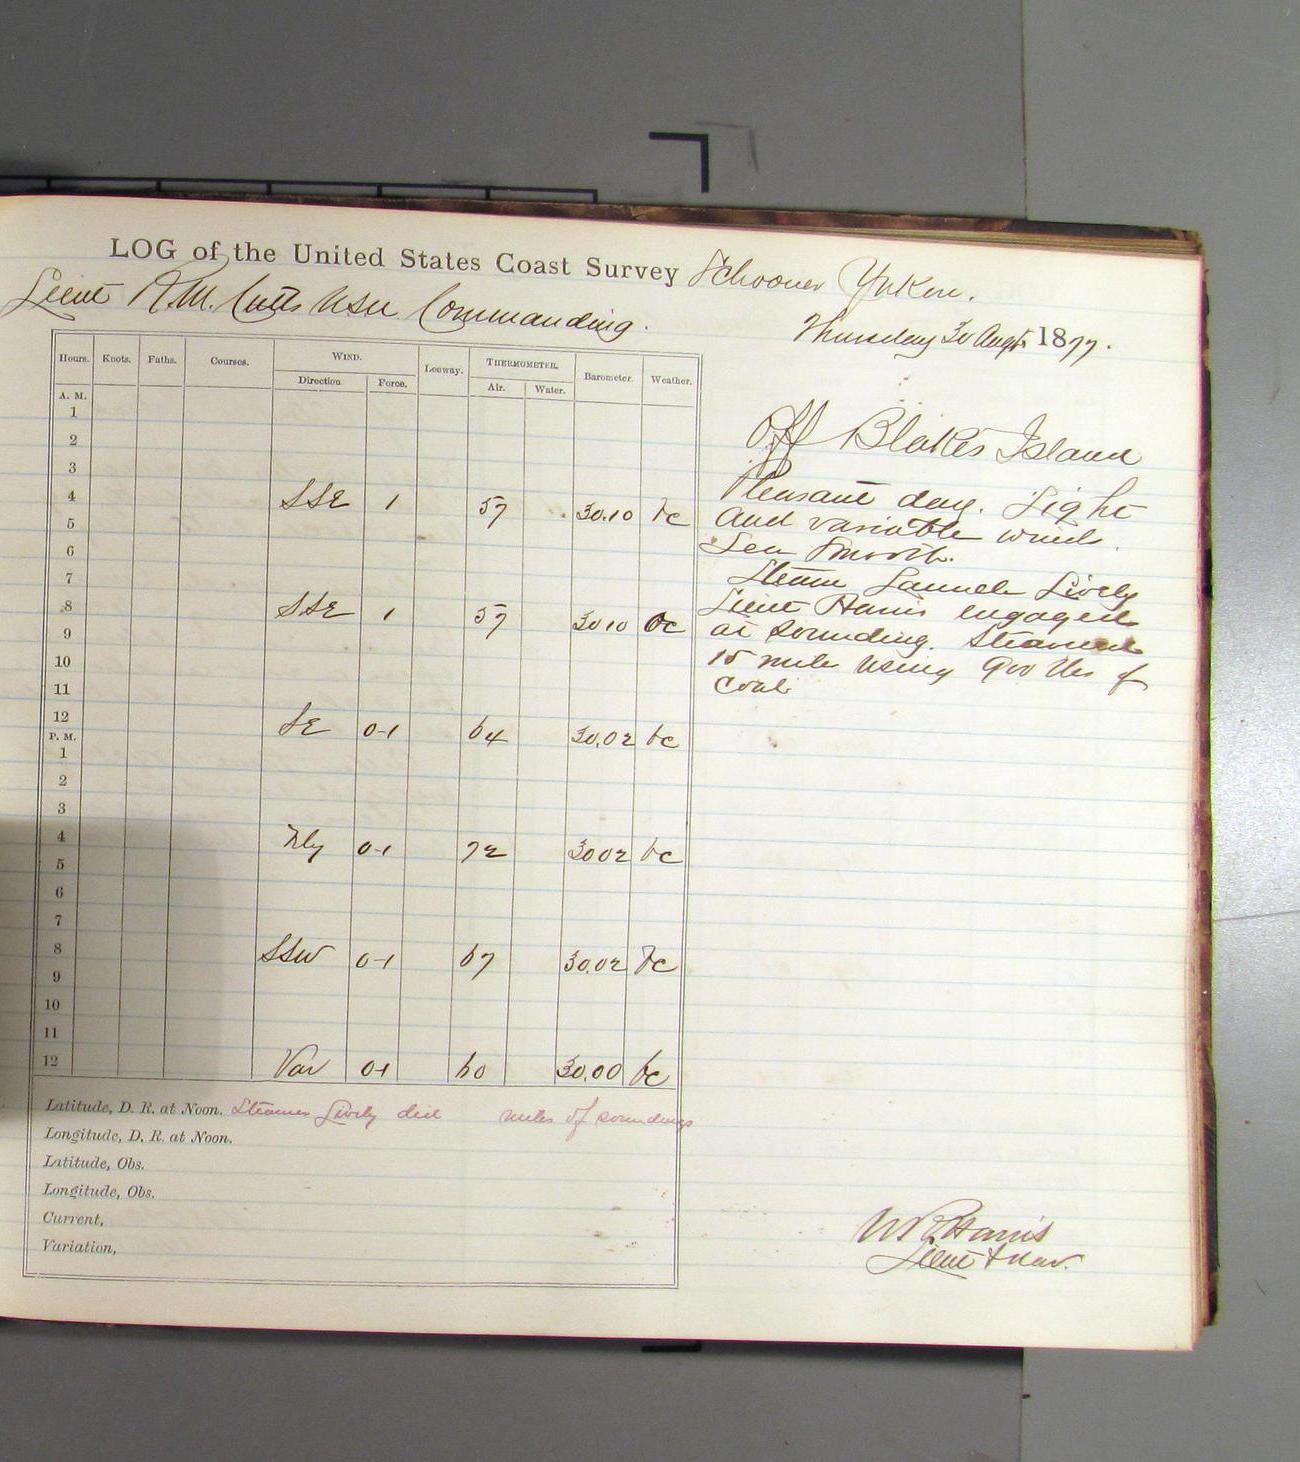 LOG of the United States Coast Survey Schooner Yukon.
Lieut R.M. Cutts USN Commanding.
Thursday 30 Augt. 1877.
Hours. Knots. Faths. Courses. WIND. Leeway. THERMOMETER. Barometer. Weather.
Direction Force. Air. Water.
A. M.
1
2
3
4 SSE 1 57 30.10 bc
5
6
7
8 SSE 1 57 30 10 bc
9
10
11
12 SE 0-1 64 30.02 bc
P. M.
1
2
3
4 Nly 0-1 72 30 02 bc
5
6
7
8 SSW 0-1 67 30.02 bc
9
10
11
12 Var 0-1 60 30.00 bc
Latitude, D. R. at Noon. Steamer Lively did miles of soundings
Longitude, D. R. at Noon.
Latitude, Obs.
Longitude, Obs.
Current,
Variation,
Off Blakes Island
Pleasant day. Light
and variable winds.
Sea Smooth.
Steam Launch Lively
Lieut Harris engaged
at sounding. Steamed
15 miles using 900 lbs of
coal.
Harris
Lieut & Nav.